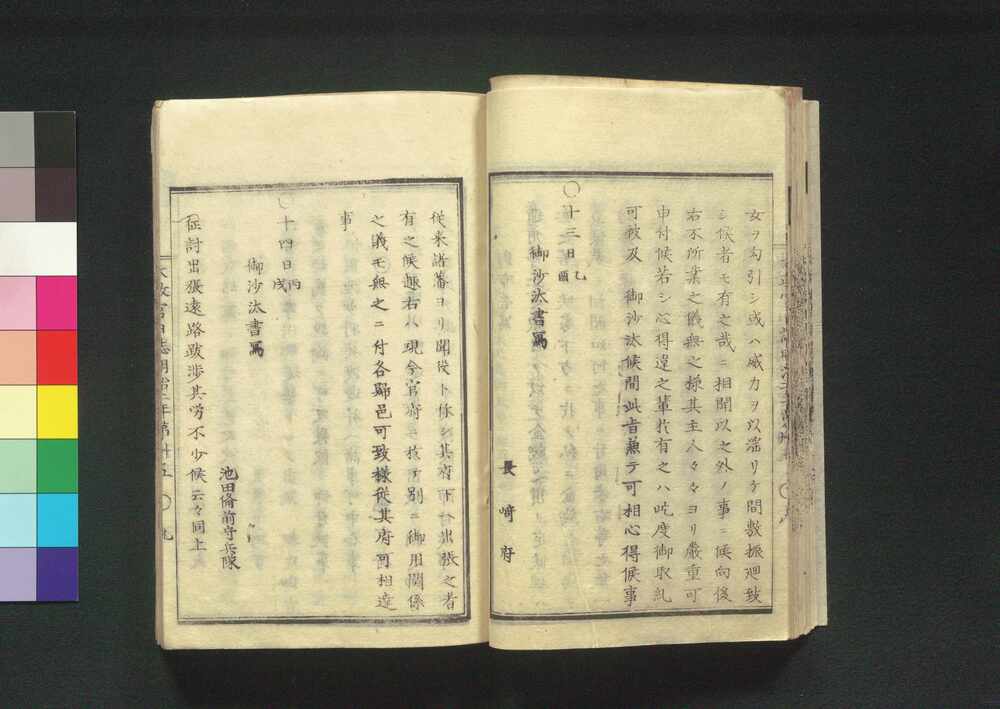 女ヲ勾引シ或ハ威力ヲ以濫リケ間敷振廻致
シ候者モ有之哉ニ相聞以之外ノ事ニ候向後
右不所業之儀無之様其主人々々ヨリ嚴重可
申付候若シ心得違之輩於有之ハ此度御取糺
可被及　御沙汰候間此旨兼テ可相心得候事
〇十三日乙酉
御沙汰書寫
長崎府
従来諸藩ヨリ聞役ト称シ其府下ヘ出張之者
有之候趣右ハ現今官府ニ於テ別ニ御用関係
之義モ無之ニ付各歸邑可致様従其府可相達
事
〇十四日丙戌
御沙汰書寫
池田備前守兵隊
征討出張遠路跋渉其労不少候云々同上
太政官日誌明治二年第廿五　〇　九